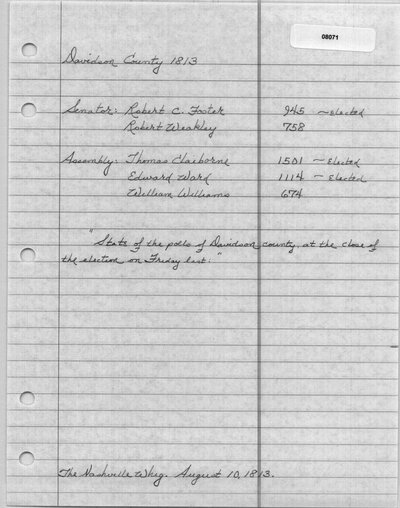 08071
Davidson County 1813
Senator: Robert C. Foster 945 ~ Elected
Robert Weakley 758
Assembly: Thomas Claiborne 1501 ~ Elected
Edward Ward 1114 ~ Elected
William Williams 674
"State of the polls of Davidson county, at the close of
the election on Friday last:"
The Nashville Whig. August 10, 1813.